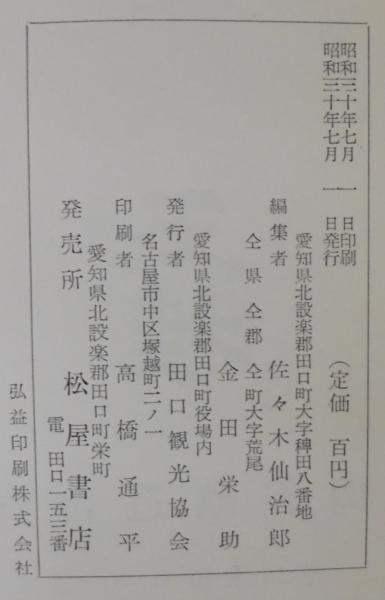 昭和三十年七月 一 日印刷
昭和三十年七月 一 日発行
(定価 百円)
愛知県北設楽郡田口町大字稗田八番地
編集者 佐々木仙治郎
仝県仝郡仝町大字荒尾
金田栄助
愛知県北設楽郡田口町役場内
発行者 田口観光協会
名古屋市中区塚越町二ノ一
印刷者 高橋通平
愛知県北設楽郡田口町栄町
発売所 松屋書店
電 田口一五三番
弘益印刷株式会社